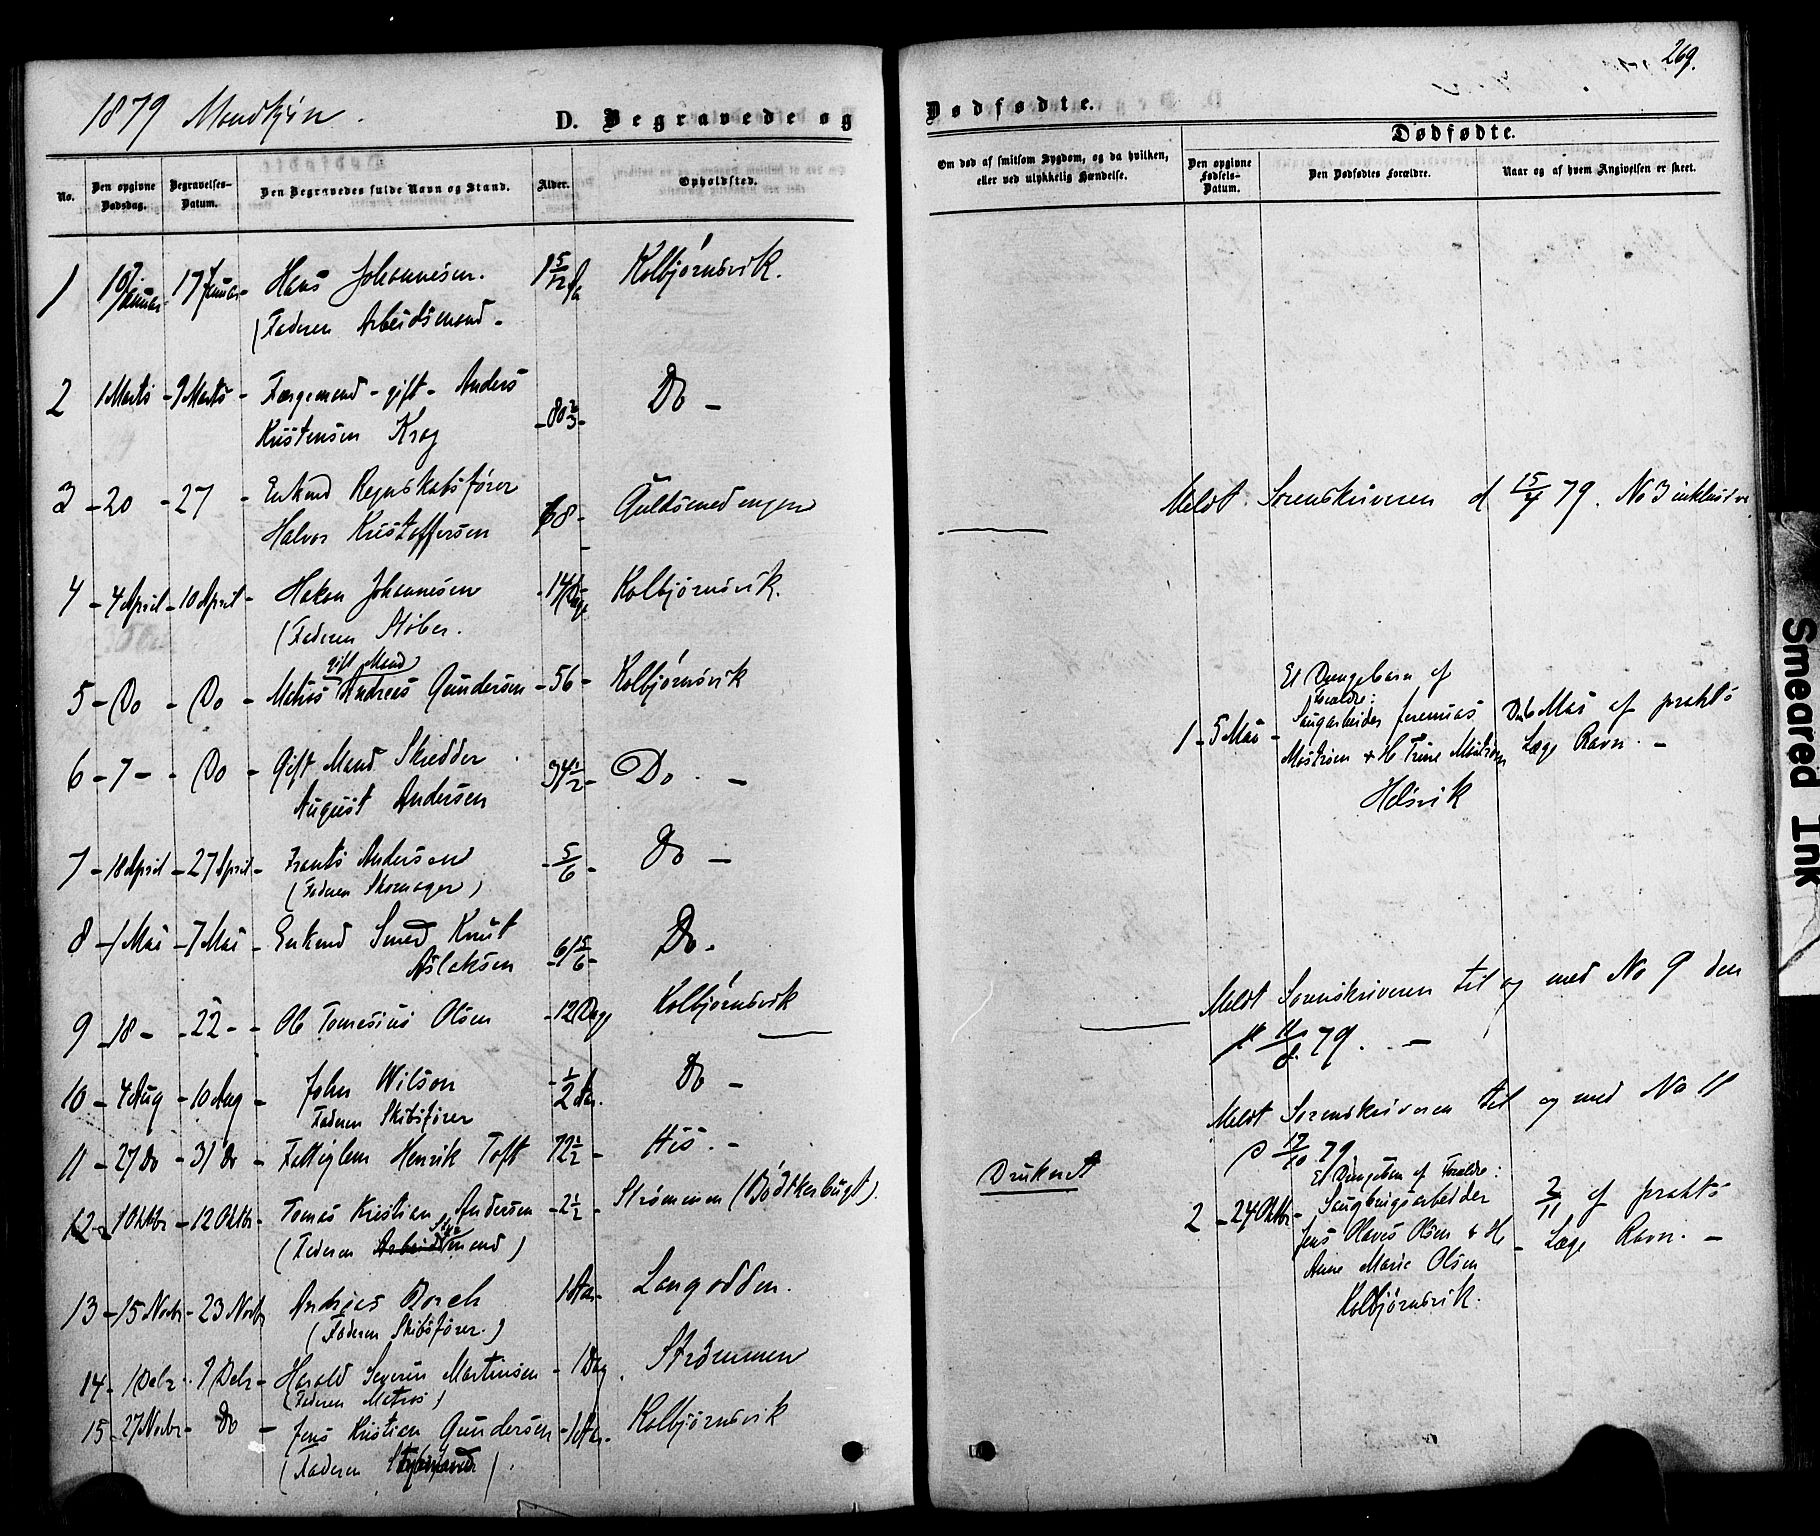 1879 Mandkjön.
D. Begravede og
No.
Den opgivne Dødsdag.
Begravelses-Datum.
Den Begravedes fulde Navn og Stand.
Alder.
Opholdsted.
1 10 Januar 17 Januar - Hans Johannesen. 1 5/12 Aa Kolbjørnsvik.
(Faderen Arbeidsmand -
2 1 Marts - 9 Marts - Færgemand - gift - Anders
Kristensen Krog - 80 2/3 - Do -
3 - 20 - 27 - Enkemd Regnskabsfører
Halvor Kristoffersen 68 - Guldsmedengen
4 - 4 April - 10 April - Hakon Johannesen - 14 Dage Kolbjørnsvik.
(Faderen Støber.
gift Mand
5 - Do - Do - Matros Andreas Gundersen - 56 - Kolbjørnsvik
6 - 7 - - Do - Gift Mand Skrædder 34 1/2 - Do. -
August Andersen
7 - 18 April - 27 April - Frants Andersen - 5/6 - Do -
(Faderen Skomager)
8 - 1 Mai - 7 Mai - Enkemd Smed Knut
Aslaksen - 61 5/6 - Do.
9 - 18 - - 22 - - Ole Tomesius Olsen - 12 Dage Kolbjørnsvik
10 - 4 Aug - 10 Aug - John Wilson - 1/2 Aar. Do -
Faderen Skibsfører
11 - 27 Do - 31 Do - Fattiglem Henrik Toft 72 1/2 - His. -
12 - 1 Oktbr - 12 Oktbr - Tomas Kristian Andersen - 2 1/2 - Strømmen (Bødtkerbugt).
(Faderen Arbeidsmand)
13 - 15 Novbr - 23 Novbr Andreas Borch 1 Aar - Langodden.
(Faderen Skibsfører.)
14 - 1 Debr. - 7 Debr - Harald Severin Martinsen - 1 Dag. Strømmen
(Faderen Matros)
15 - 27 Novbr - Do - Jens Kristian Gundersen - 1 Aar. Kolbjørnsvik
(Faderen
269.
Dødfødte.
Om død af smitsom Sygdom, og da hvilken,
eller ved ulykkelig Hændelse.
Dødfødte.
Den opgivne Fødsels-Datum.
Den Dødfødtes Forældre.
Naar og af hvem Angivelsen er skeet.
Meldt Sorenskriveren d 15/4 79. No 3 inklusive.
Et Drengebarn af
Forældre:
1 - 5 Mai - Saugarbeider Jeremias D. 6 Mai af prakts
Møstrøm & H Trine Møstrøm Læge Ravn. -
Helsvik
Meldt Sorenskriveren til og med No 9 den
11/8 79. -
Meldt Sorenskriveren til og med No 11
p 17/10 79
Druknet
Et Drengebarn af Forældre:
2 - 24 Oktbr - Saugbrugsarbeider 2/11 af prakts
Jens Olaves Olsen & H - Læge Ravn. -
Anne Marie Olsen
Kolbjørnsvik.
Smeared Ink